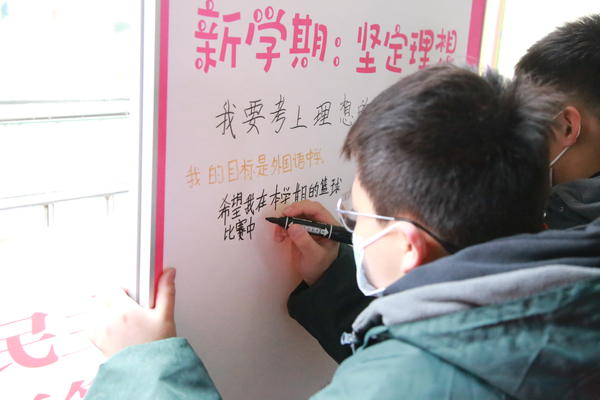 新学期：坚定理想
我要考上理想
我的目标是外国语中学、
希望我在本学期的篮球
比赛中
民